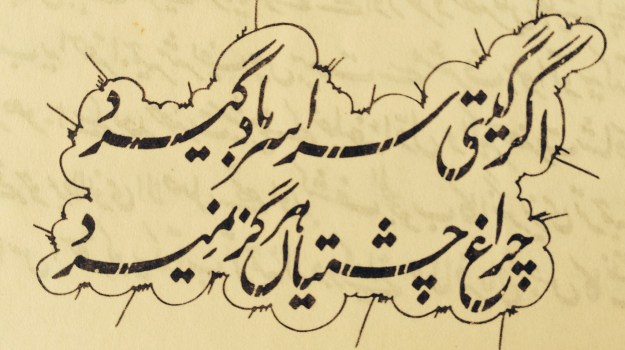 اگر گیتی سراسر باد گیرد
چراغ چشتیاں ہرگز نمیرد